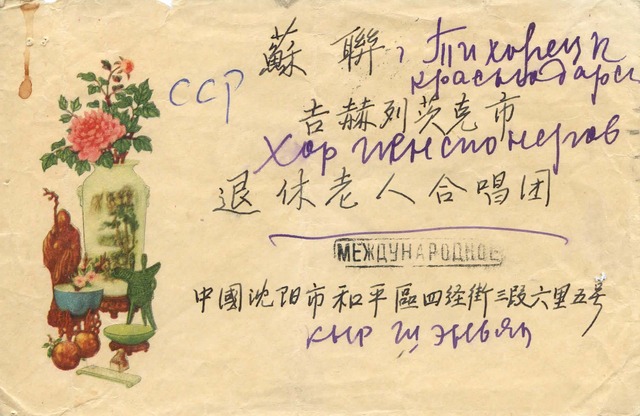 蘇 聯, Тихорецк
ССР
Краснодарс
吉赫列茨克市
Хор пенсионеров
退休老人合唱团
МЕЖДУНАРОДНОЕ
中國沈阳市和平區四经街三段六里五号
КНР Шэньян